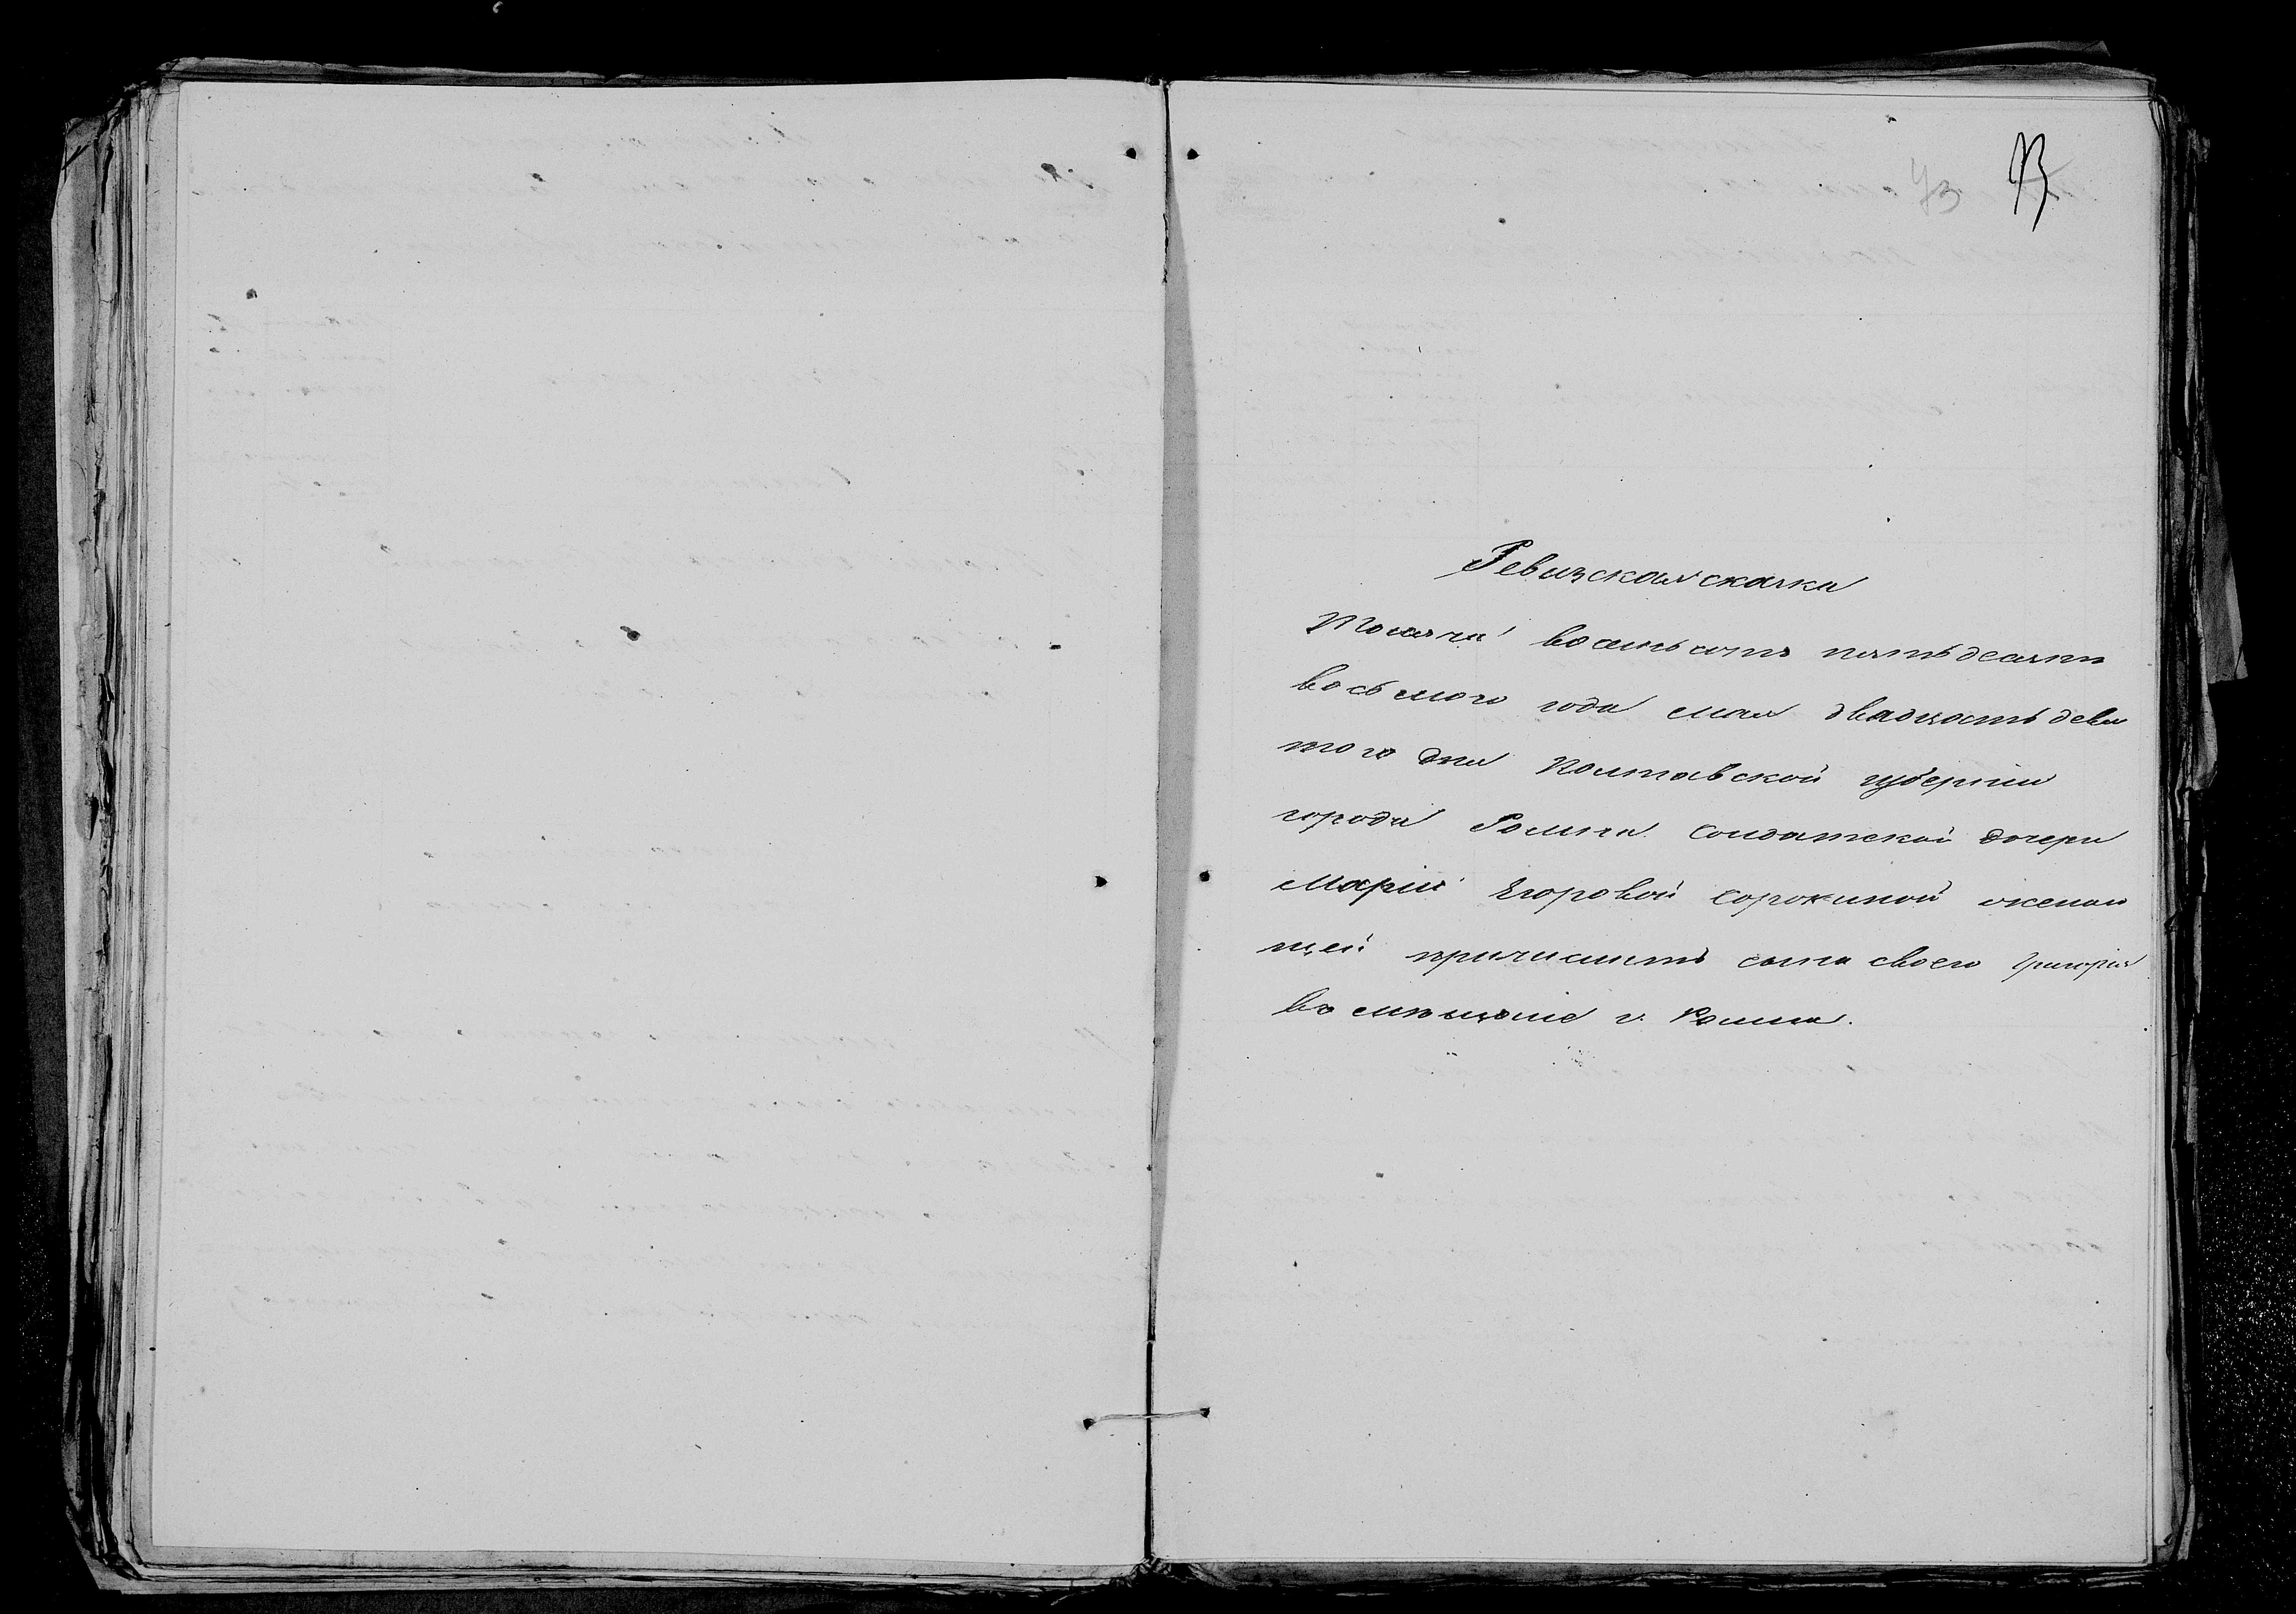 73
73
Ревизская скаска
Тысяча восемьсотъ пятьдесятъ
восьмого года мая двадцать девя
того дня Полтавской губерніи
города Ромна солдатской дочери
Маріи Егоровой Сорокиной желаю
щей причислить сына своего Григорія
въ мѣщане г. Ромна.